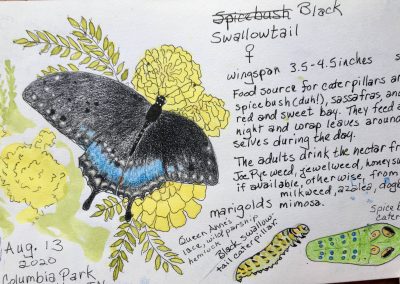 Spicebush Black
Swallowtail
♀
wingspan 3.5-4.5 inches
Food source for caterpillars ar
spicebush (duh!), sassafras, and
red and sweet bay. They feed a
night and wrap leaves around
selves during the day.
The adults drink the nectar fr
Joe Pye weed, jewelweed, honeysu
if available, otherwise, from
milkweed, azalea, dogb
marigolds mimosa.
Queen Anne's
lace, wild parsnip
hemlock
Black swallow-
tail caterpillar.
Spice b
Cater
Aug. 13
2020
Columbia Park